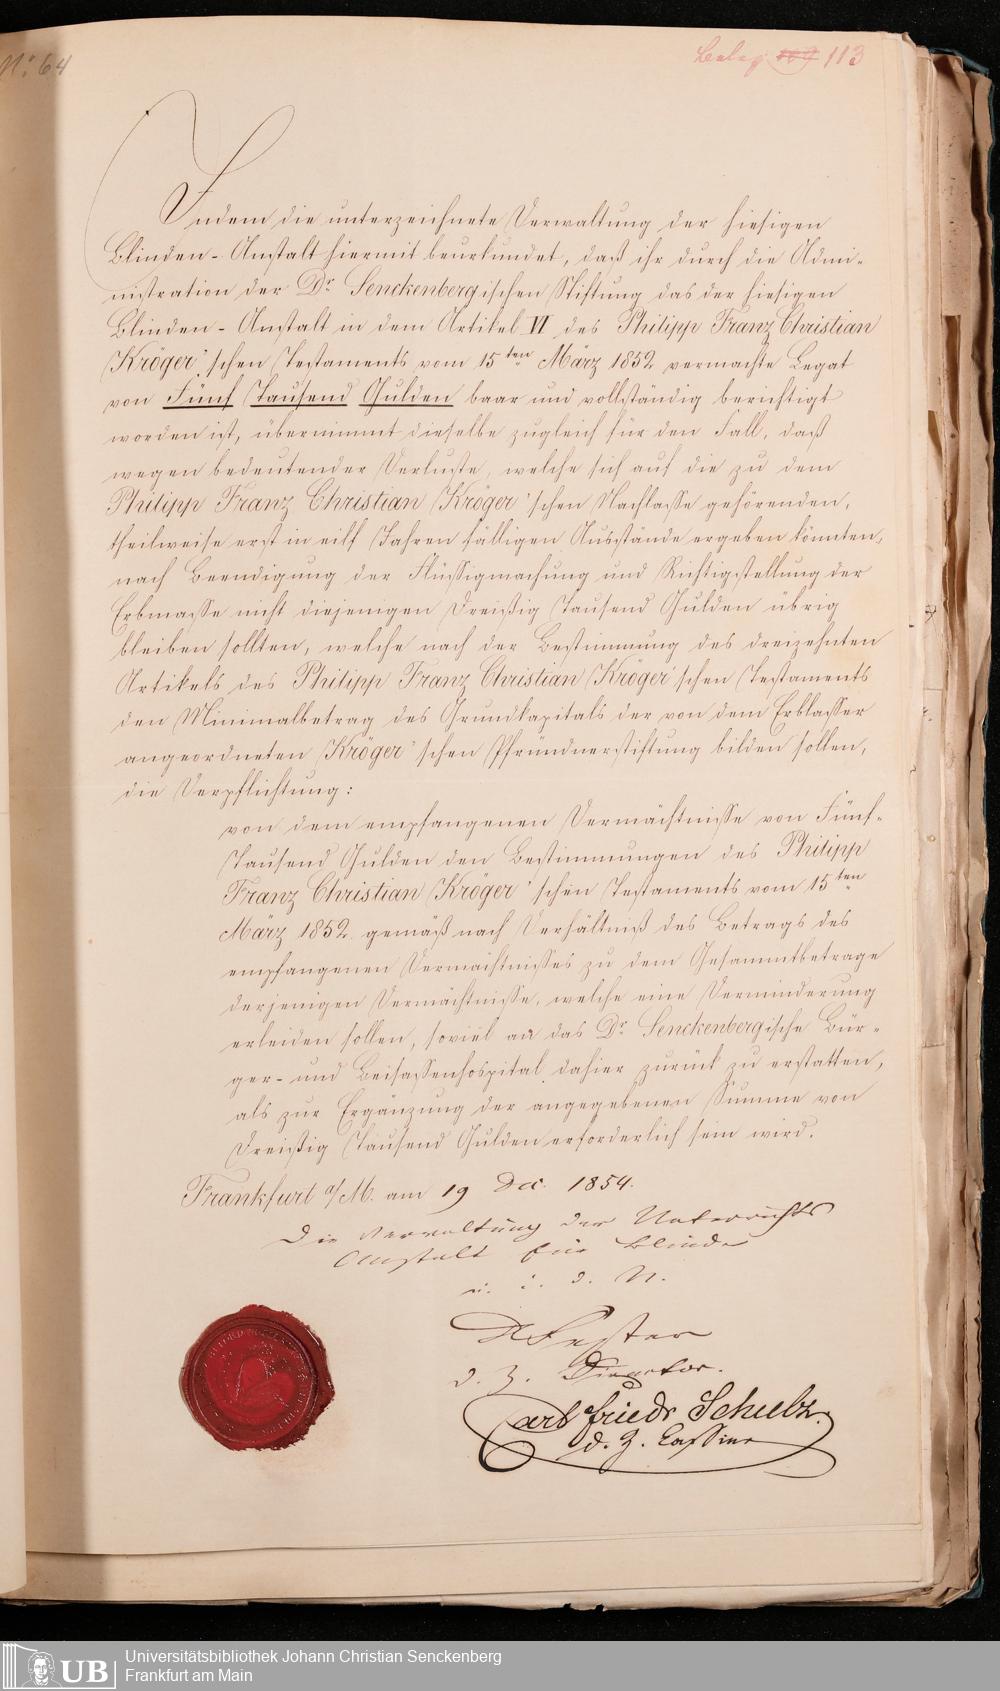 No: 64
Beleg 109 113
Indem die unterzeichnete Verwaltung der hiesigen
Blinden-Anstalt hiermit beurkundet, daß ihr durch die Admi-
nistration der Dr. Senckenbergischen Stiftung das der hiesigen
Blinden-Anstalt in dem Artikel VI des Philipp Franz Christian
Kröger'schen Testaments vom 15ten März 1852 vermachte Legat
von Fünf Tausend Gulden baar und vollständig berichtigt
worden ist, übernimmt dieselbe zugleich für den Fall, daß
wegen bedeutender Verluste, welche sich auf die zu dem
Philipp Franz Christian Kröger'schen Nachlasse gehörenden,
theilweise erst in eilf Jahren fälligen Ausstände ergeben könnten,
nach Beendigung der Flüssigmachung und Richtigstellung der
Erbmasse nicht diejenigen Dreißig Tausend Gulden übrig
bleiben sollten, welche nach der Bestimmung des dreizehnten
Artikels des Philipp Franz Christian Kröger'schen Testaments
den Minimalbetrag des Grundkapitals der von dem Erblasser
angeordneten Kröger'schen Pfründnerstiftung bilden sollen,
die Verpflichtung:
von dem empfangenen Vermächtnisse von Fünf-
Tausend Gulden den Bestimmungen des Philipp
Franz Christian Kröger'schen Testaments vom 15ten
März 1852. gemäß nach Verhältniß des Betrags des
empfangenen Vermächtnisses zu dem Gesammtbetrage
derjenigen Vermächtnisse, welche eine Verminderung
erleiden sollen, soviel an das Dr. Senckenbergische Bür-
ger- und Beisassenhospital dahier zurück zu erstatten,
als zur Ergänzung der angegebenen Summe von
Dreißig Tausend Gulden erforderlich sein wird.
Frankfurt a/M. am 19 Dec. 1854.
Die Verwaltung der Unterrichts
Anstalt für Blinde
u. i. d. N.
Dr Fester
d. Z. Director.
Carl Friedr Schulz.
d. Z. Cassier
UB
Universitätsbibliothek Johann Christian Senckenberg
Frankfurt am Main